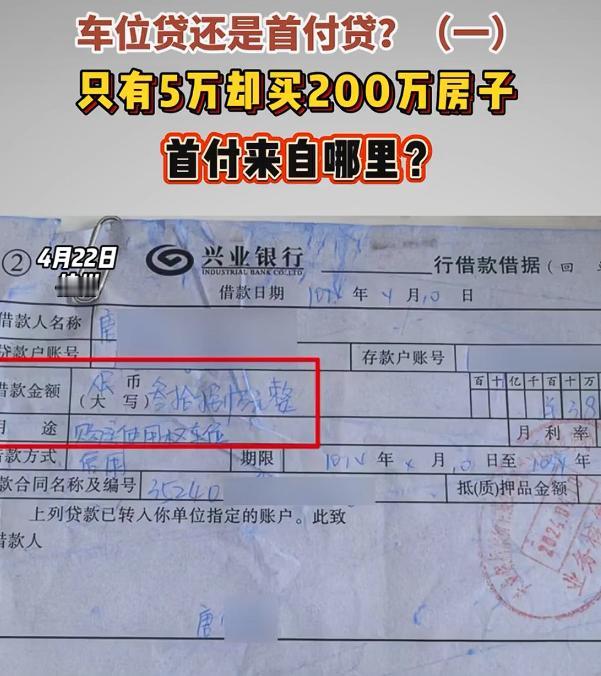 车位贷还是首付贷？（一）
只有5万却买200万房子
首付来自哪里？
4月22日
② 兴业银行 行借款借据（回
INDUSTRIAL BANK CO.,LTD.
借款日期 年 4 月 10 日
借款人名称 唐
贷款户账号 存款户账号
借款金额 币 百 十 亿 千 百 十 万
（大 写）叁拾捌 整 38
用 途 购买使用权车位 月 利 率
借款方式 信用 期限 年 4 月 10 日至
借款合同名称及编号 35240 抵（质）押品金额
上列贷款已转入你单位指定的账户。此致
借款人
唐